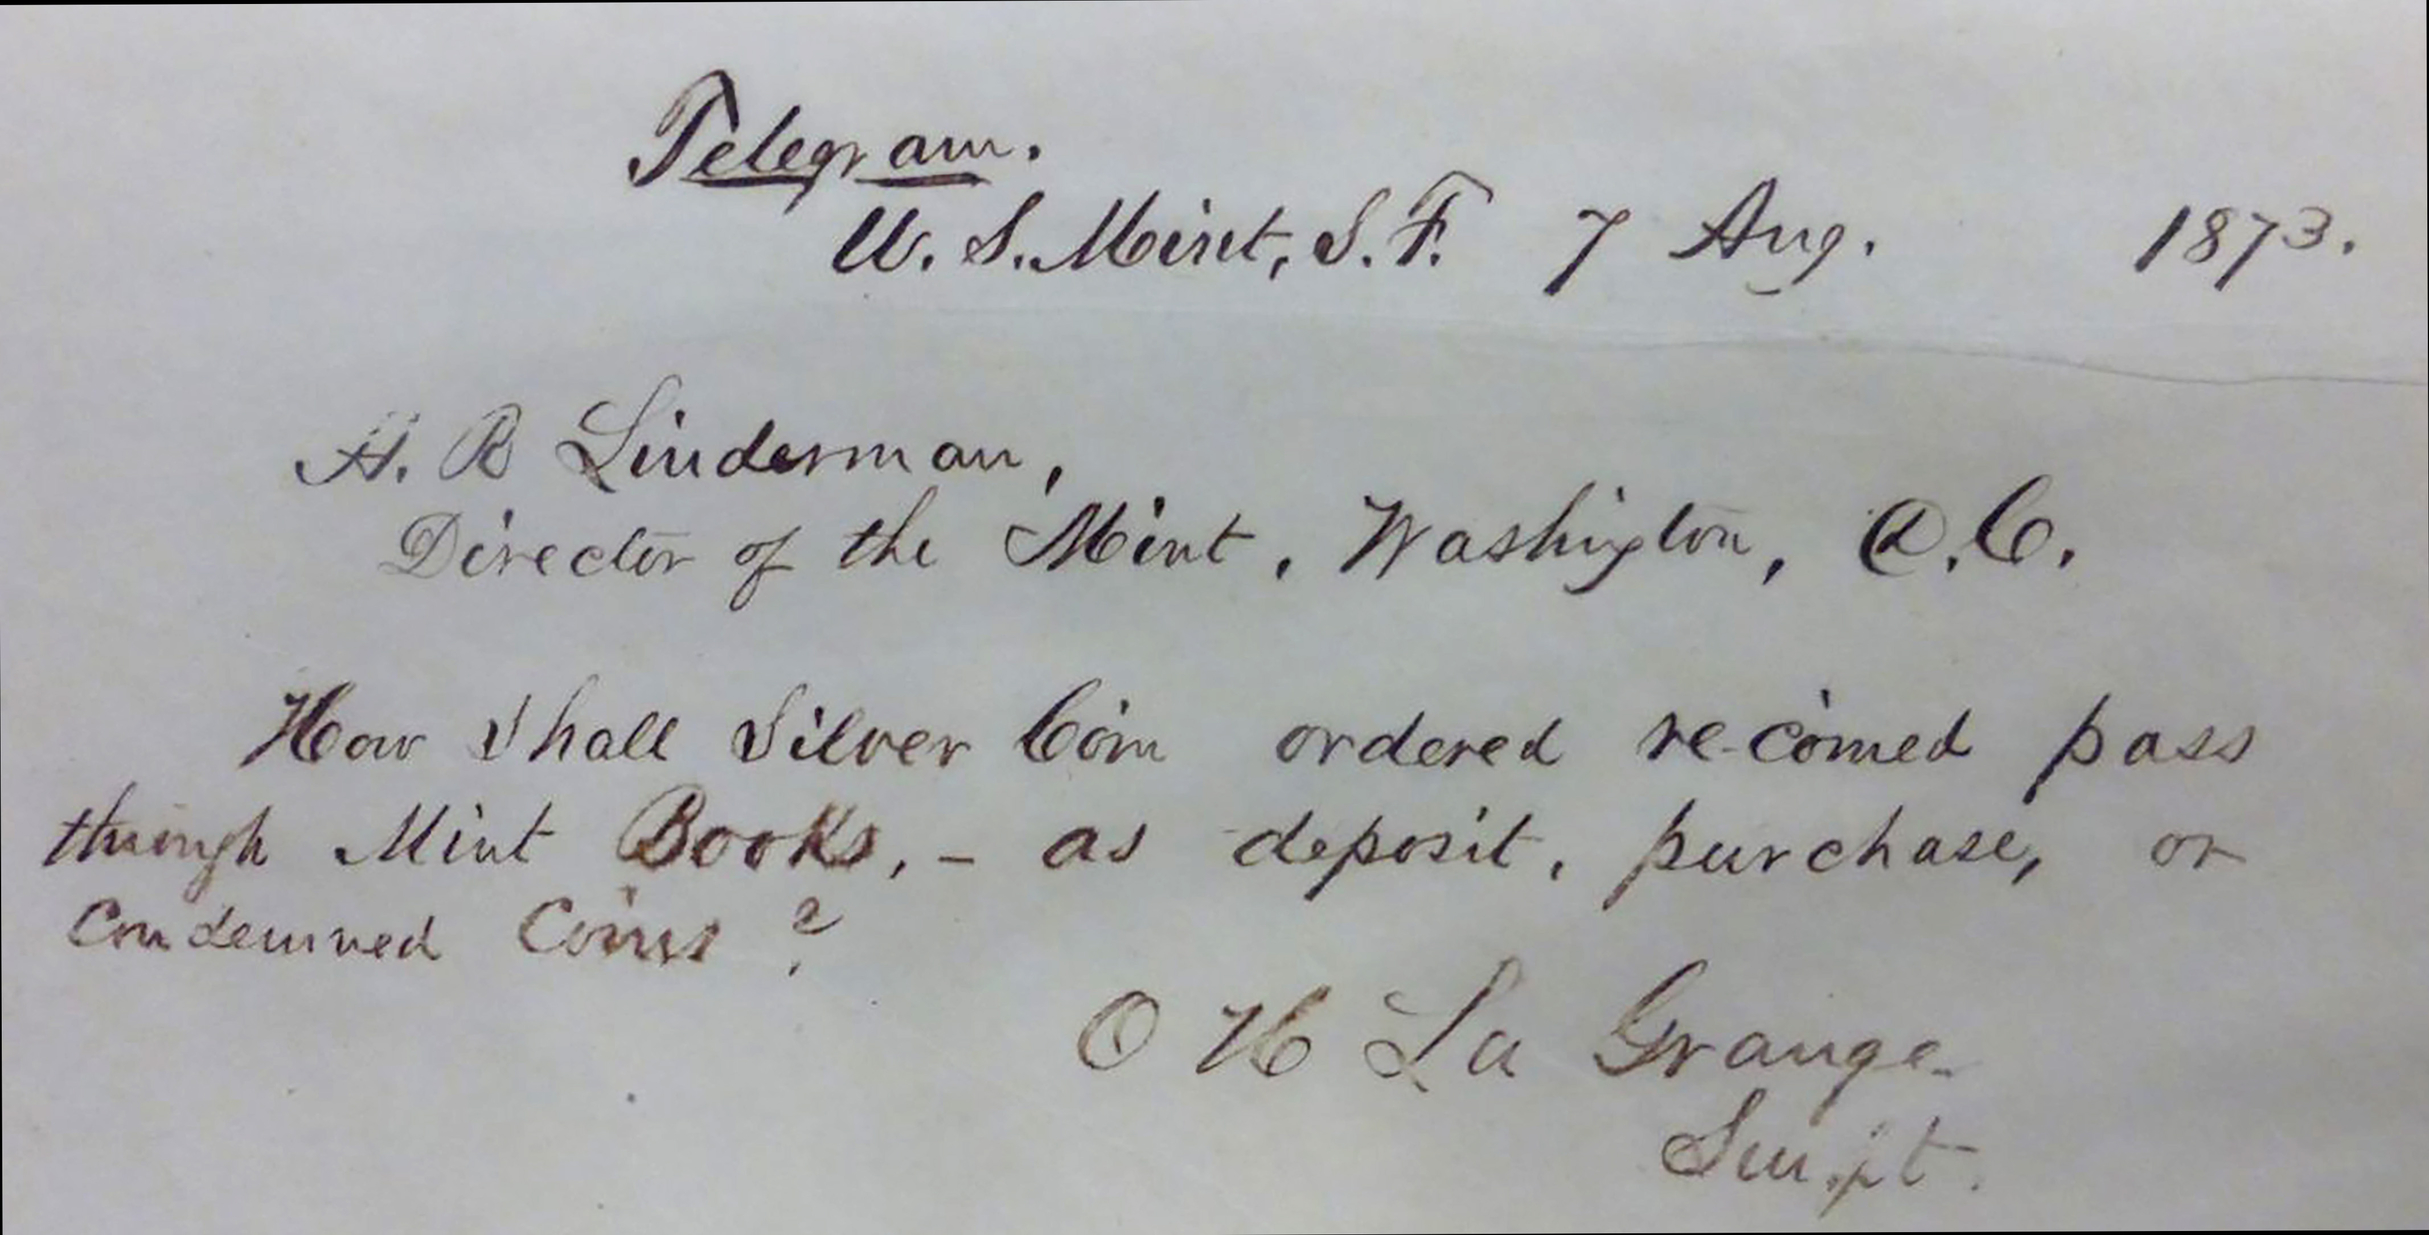 Telegram.
U. S. Mint, S. F. 7 Aug. 1873.
H. R Linderman,
Director of the Mint, Washington, D. C.
How shall Silver Coin ordered re-coined pass
through Mint Books, - as deposit, purchase, or
Condemned Coins?
O H La Grange
Supt.